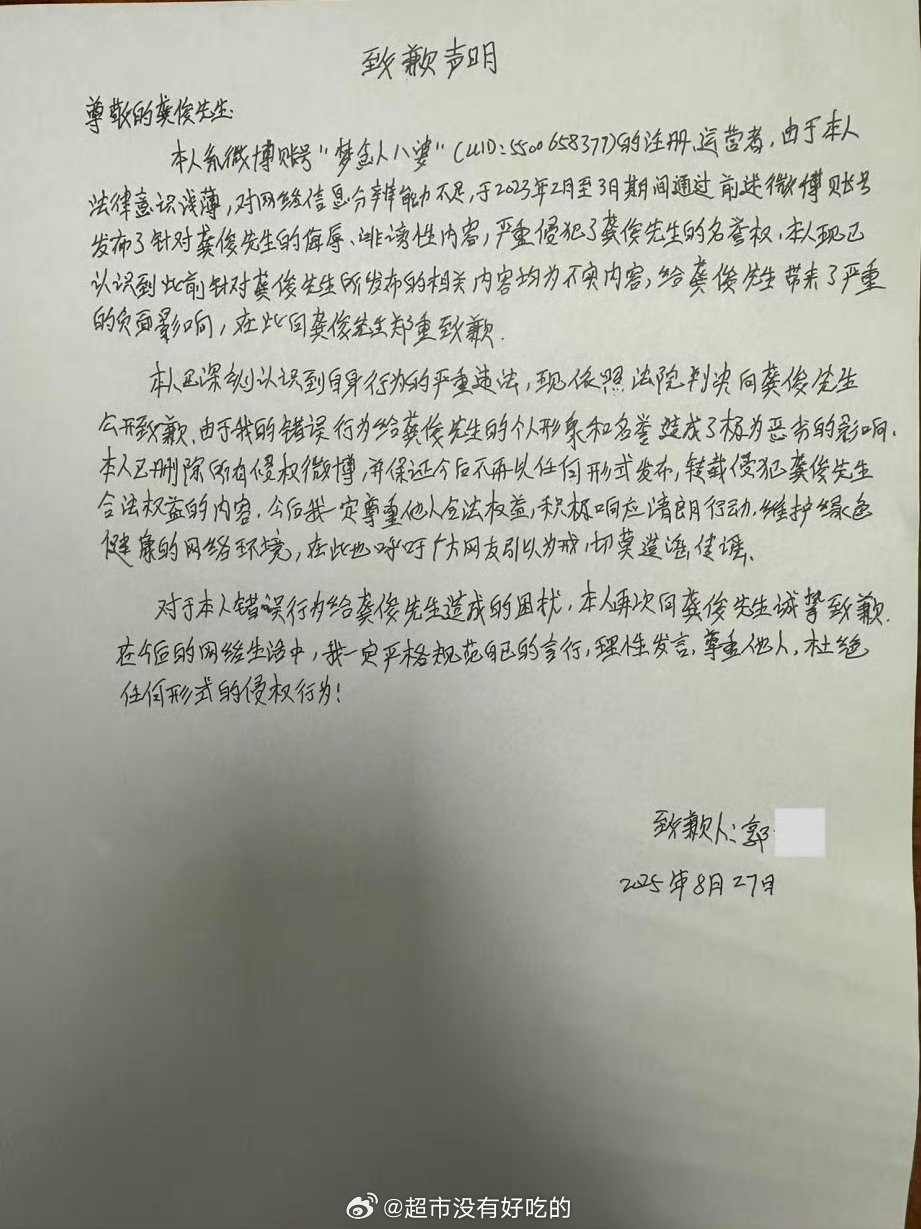 致歉声明
尊敬的龚俊先生:
本人系微博账号“梦金人八婆”(UID:5500658377)的注册、运营者,由于本人
法律意识浅薄,对网络信息分辨能力不足,于2023年2月至3月期间通过前述微博账号
发布了针对龚俊先生的侮辱、诽谤性内容,严重侵犯了龚俊先生的名誉权,本人现已
认识到此前针对龚俊先生所发布的相关内容均为不实内容,给龚俊先生带来了严重
的负面影响,在此向龚俊先生郑重致歉.
本人已深刻认识到自身行为的严重违法,现依照法院判决向龚俊先生
公开致歉.由于我的错误行为给龚俊先生的个人形象和名誉造成了极为恶劣的影响.
本人已删除所有侵权微博,并保证今后不再以任何形式发布,转载侵犯龚俊先生
合法权益的内容.今后我一定尊重他人合法权益,积极响应清朗行动,维护绿色
健康的网络环境,在此也呼吁广大网友引以为戒,切莫造谣、传谣.
对于本人错误行为给龚俊先生造成的困扰,本人再次向龚俊先生诚挚致歉.
在今后的网络生活中,我一定严格规范自己的言行,理性发言,尊重他人,杜绝
任何形式的侵权行为!
致歉人:郭
2025年8月27日
@超市没有好吃的